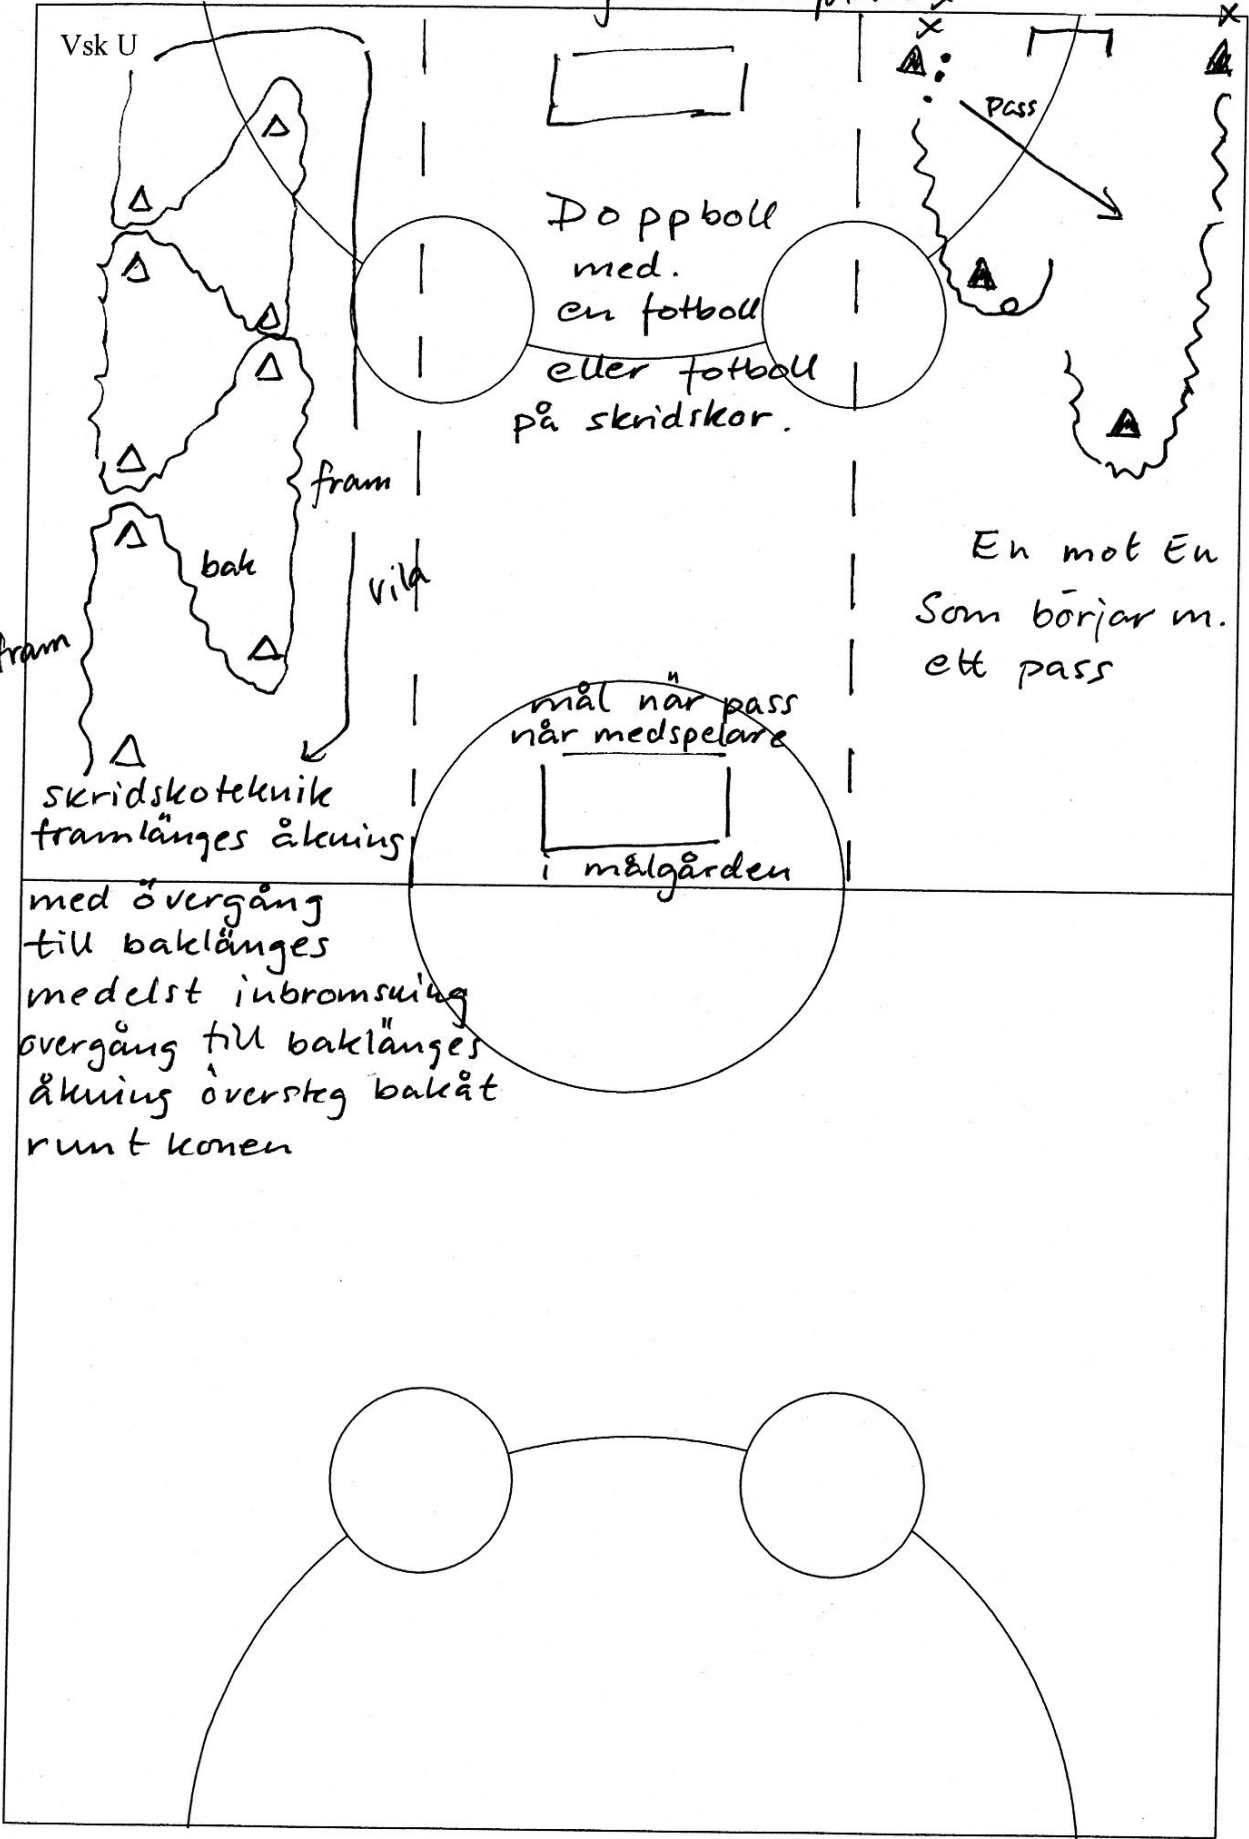 Vsk U
pass
Doppboll
med.
en fotboll
eller fotboll
på skridskor.
fram
bak
vila
fram
En mot En
Som börjar m.
ett pass
mål när pass
når medspelare
i målgården
skridskoteknik
framlänges åkning
med övergång
till baklänges
medelst inbromsning
övergång till baklänges
åkning översteg bakåt
runt konen